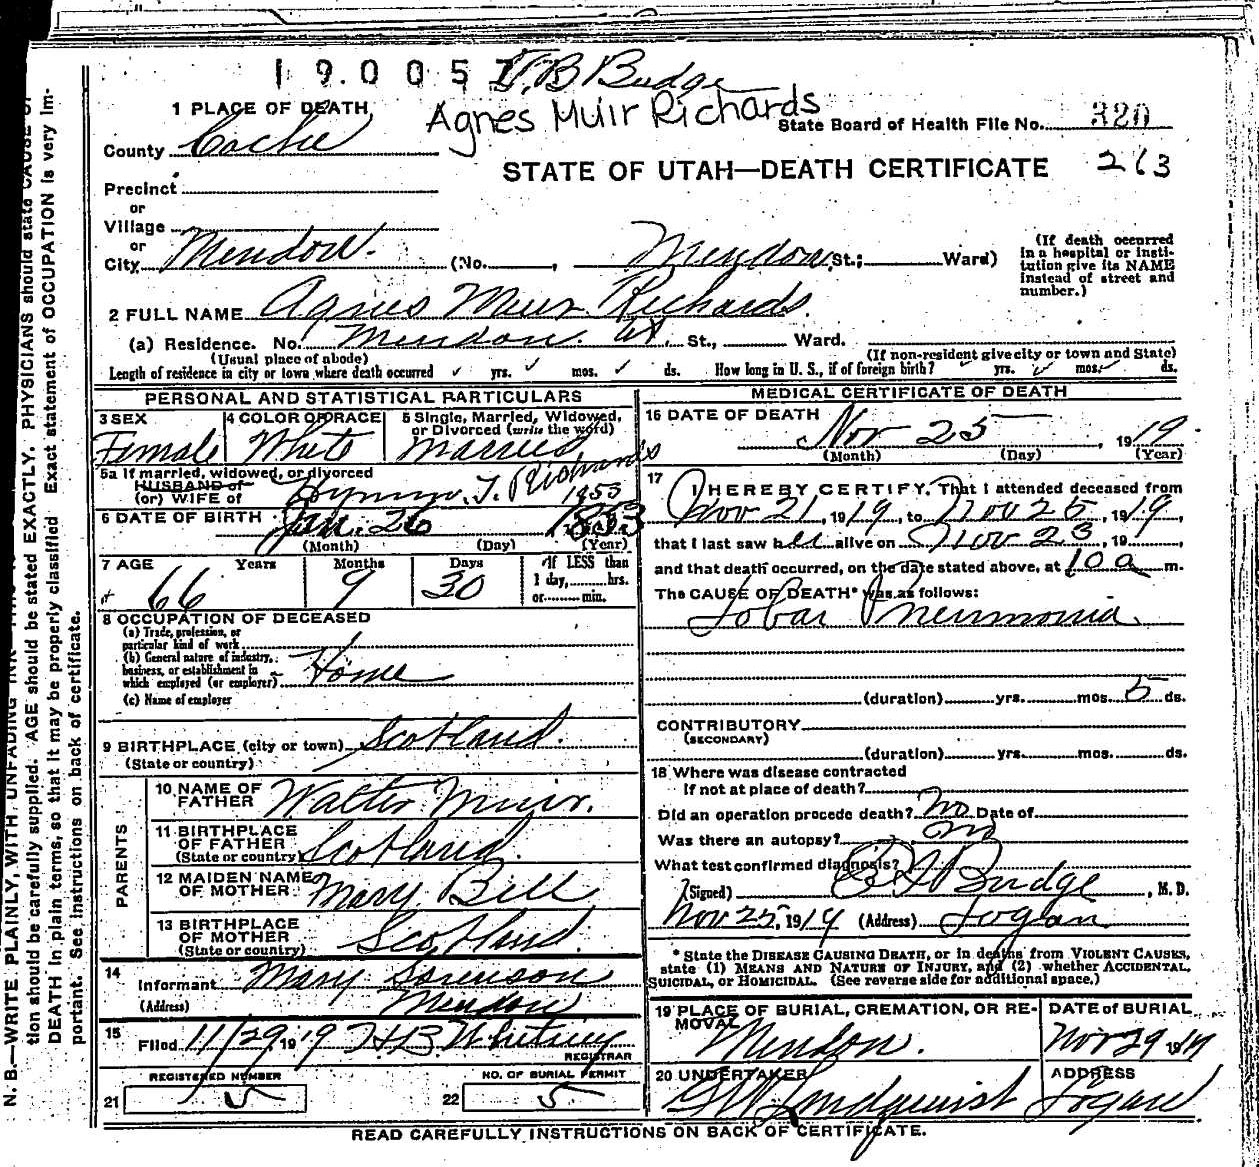 190057 D.B Budge
Agnes Muir Richards
1 PLACE OF DEATH
State Board of Health File No. 320
County Cache
STATE OF UTAH—DEATH CERTIFICATE 263
Precinct
or
Village
or
City Mendon. (No. , Mendon, St.; Ward)
(If death occurred in a hospital or insti-
tution give its NAME
instead of street and
number.)
2 FULL NAME Agnes Muir Richards.
(a) Residence. No. Mendon. Ut. St., Ward.
(Usual place of abode) (If non-resident give city or town and State)
Length of residence in city or town where death occurred yrs. mos. ds. How long in U. S., if of foreign birth? yrs. mos. ds.
PERSONAL AND STATISTICAL PARTICULARS
3 SEX 4 COLOR OR RACE 5 Single, Married, Widowed, or Divorced (write the word)
Female White Married
5a If married, widowed, or divorced
HUSBAND of
(or) WIFE of Hyrum T. Richards
1853
6 DATE OF BIRTH Jan. 26 1853
(Month) (Day) (Year)
7 AGE Years Months Days If LESS than
1 day, hrs.
or min.
66 9 30
8 OCCUPATION OF DECEASED
(a) Trade, profession, or
particular kind of work
(b) General nature of industry,
business, or establishment in
which employed (or employer) Home
(c) Name of employer
9 BIRTHPLACE (city or town) Scotland.
(State or country)
PARENTS
10 NAME OF FATHER Walter Muir.
11 BIRTHPLACE OF FATHER (State or country) Scotland.
12 MAIDEN NAME OF MOTHER Mary Bell
13 BIRTHPLACE OF MOTHER (State or country) Scotland.
14 Informant Mary Sorenson
(Address) Mendon
15 Filed 11/29, 1919 H.B. Whitney
REGISTRAR
REGISTERED NUMBER NO. OF BURIAL PERMIT
21 5 22 5
MEDICAL CERTIFICATE OF DEATH
16 DATE OF DEATH
Nov 25, 1919.
(Month) (Day) (Year)
17 I HEREBY CERTIFY, That I attended deceased from
Nov 21, 1919, to Nov 25, 1919,
that I last saw her alive on Nov 23, 191,
and that death occurred, on the date stated above, at 10 a m.
The CAUSE OF DEATH* was as follows:
Lobar Pneumonia
(duration) yrs. mos. 5 ds.
CONTRIBUTORY
(SECONDARY)
(duration) yrs. mos. ds.
18 Where was disease contracted
if not at place of death?
Did an operation precede death? No Date of
Was there an autopsy? No
What test confirmed diagnosis?
(Signed) Budge, M. D.
Nov 25, 1919 (Address) Logan
* State the DISEASE CAUSING DEATH, or in deaths from VIOLENT CAUSES,
state (1) MEANS AND NATURE OF INJURY, and (2) whether ACCIDENTAL,
SUICIDAL, or HOMICIDAL. (See reverse side for additional space.)
19 PLACE OF BURIAL, CREMATION, OR RE-
MOVAL DATE OF BURIAL
Mendon. Nov 29 1919
20 UNDERTAKER ADDRESS
Lindquist Logan
READ CAREFULLY INSTRUCTIONS ON BACK OF CERTIFICATE.
N. B.—WRITE PLAINLY, WITH UNFADING INK
tion should be carefully supplied. AGE should be stated EXACTLY. PHYSICIANS should state CAUSE OF
DEATH in plain terms, so that it may be properly classified. Exact statement of OCCUPATION is very im-
portant. See instructions on back of certificate.